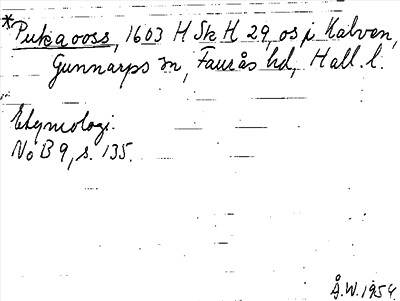 *Pukaooss, 1603 H Sk H 29, os i Kalven,
Gunnarps sn, Faurås hd, Hall. l.
Etymologi.
NoB 9, s. 135.
Å.W. 1954.